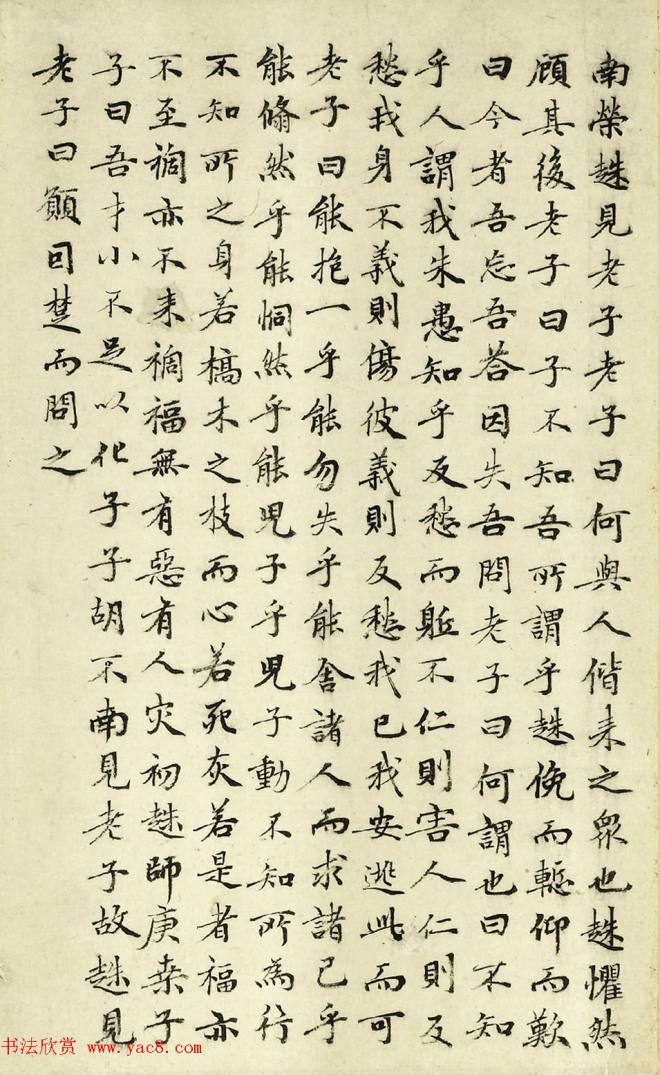 南榮趎見老子老子曰何與人偕来之眾也趎懼然
顧其後老子曰子不知吾所謂乎趎俛而慙仰而歎
曰今者吾忘吾荅因失吾問老子曰何謂也曰不知
乎人謂我朱愚知乎反愁而軀不仁則害人仁則反
愁我身不義則傷彼義則反愁我已我安逃此而可
老子曰能抱一乎能勿失乎能舍諸人而求諸己乎
能翛然乎能恫然乎能兒子乎兒子動不知所為行
不知所之身若槁木之枝而心若死灰若是者福亦
不至禍亦不来禍福無有惡有人灾初趎師庚桑子
子曰吾才小不足以化子子胡不南見老子故趎見
老子曰願囙楚而問之
书法欣赏 www.yac8.com